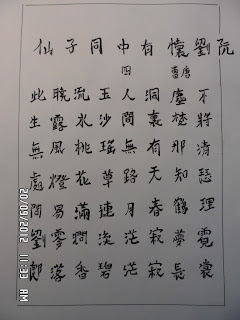 仙子同中有懷劉阮
四 曹唐
不將清瑟理霓裳
塵梦那知鶴夢長
洞裏有天春寂寂
人間無路月茫茫
玉沙瑤草連溪碧
流水桃花滿澗香
曉露風燈易零落
此生無處問劉郎
20/09/2012 11:33 AM